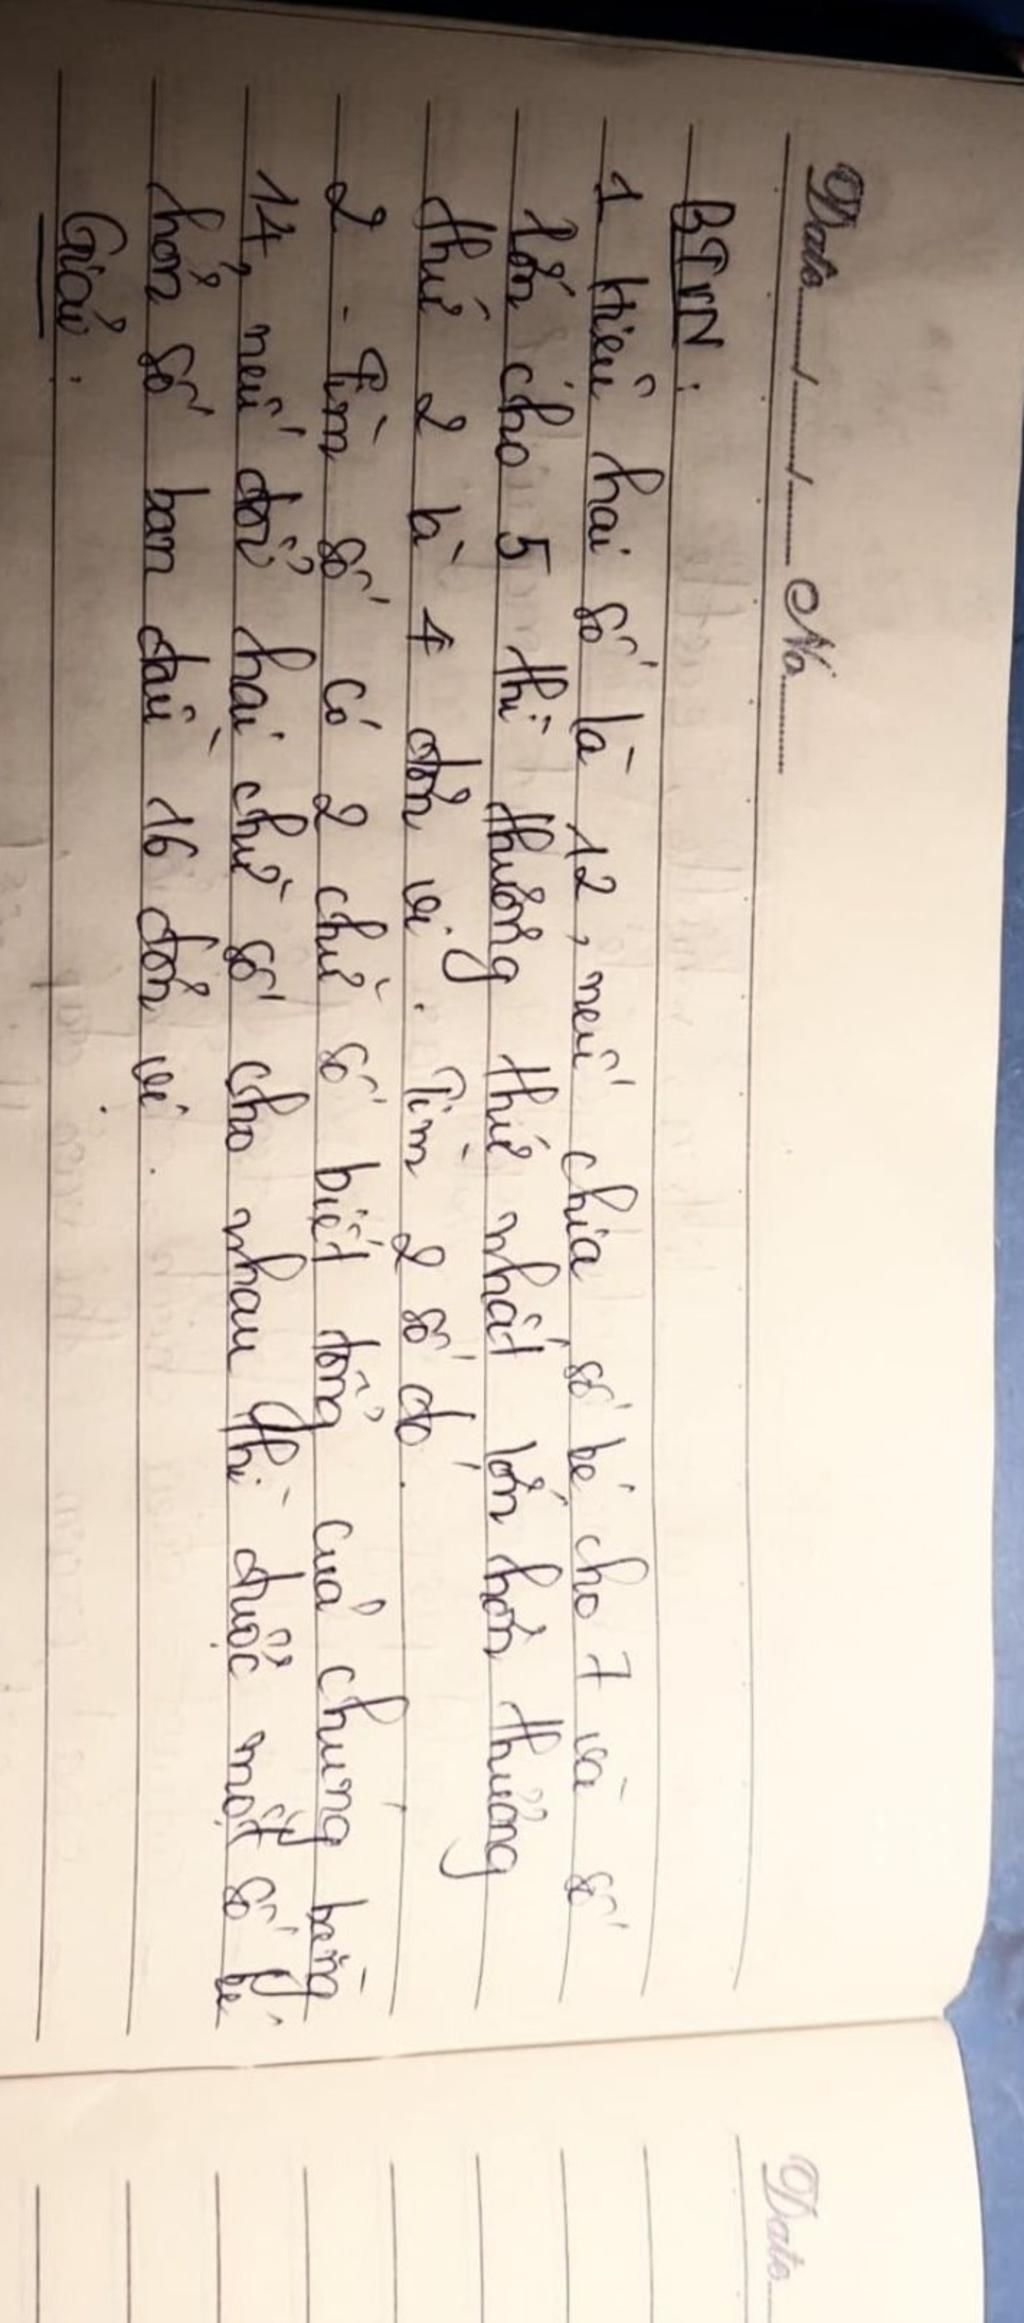 Date....../....../...... No.......
BTVN:
1 Hiệu hai số là 12, nếu chia số bé cho 7 và số
lớn cho 5 thì thương thứ nhất lớn hơn thương
thứ 2 là 4 đơn vị. Tìm 2 số đó.
2 - Tìm số có 2 chữ số biết tổng của chúng bằng
14, nếu đổi hai chữ số cho nhau thì được một số bé
hơn số ban đầu 16 đơn vị.
Giải:
Date